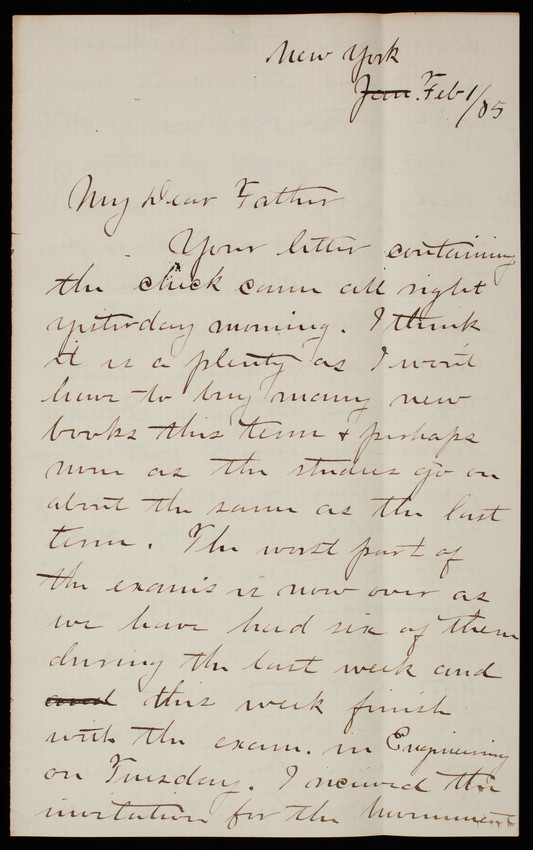 New York
Jan. Feb 1/85
My Dear Father
Your letter containing
the check came all right
yesterday morning. I think
it is a plenty as I won't
have to buy many new
books this term & perhaps
none as the studies go on
about the same as the last
term. The worst part of
the exams is now over as
we have had six of them
during the last week and
and this week finish
with the exam. in Engineering
on Tuesday. I received the
invitation for the Monument